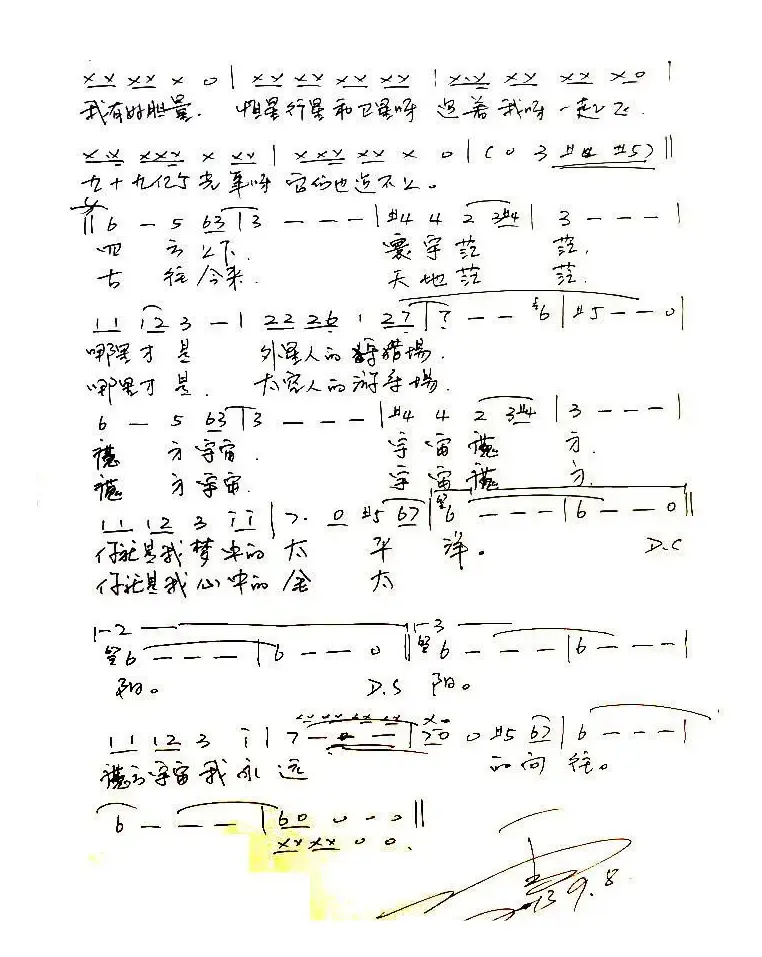 x x x x x 0 | x x x x x x x x | x x x x x x x 0 |
我有好胆量. 恒星行星和卫星呀 追着我呀一起飞.
x x x x x x x x | x x x x x x 0 | ( 0 3 #4 #5 ) ||
九十九亿个光年呀 它们也追不上。
|| 6 — 5 63 | 3 — — — | #4 4 2 3#4 | 3 — — — |
四方上下. 寰宇茫茫.
古往今来. 天地茫茫.
11 12 3 — | 22 26 1 27 | 7 — — #6 | #5 — — 0 |
哪里才是 外星人的狩猎場.
哪里才是. 太空人的游乐場.
6 — 5 63 | 3 — — — | #4 4 2 3#4 | 3 — — — |
方宇宙. 宇宙 方.
方宇宙. 宇宙 方.
11 12 3 i i | 7. 0 #5 67 | 6 — — — | 6 — — 0 ||
你就是我梦中的太平洋。 D.C
你就是我心中的金太
1-2 1-3
6 — — — | 6 — — 0 || 6 — — — | 6 — — — |
阳。 D.S 阳。
x x x x x x x x x 0
11 12 3 i | 7 — — — | 70 0 #5 67 | 6 — — — |
宇宙我永远 的向往。
6 — — — | 60 0 - 0 ||
x x x x 0 0.
13 9.8